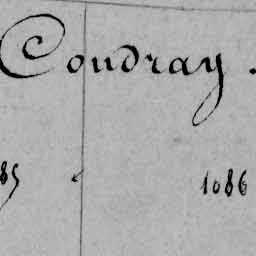 Coudray.
85 1086